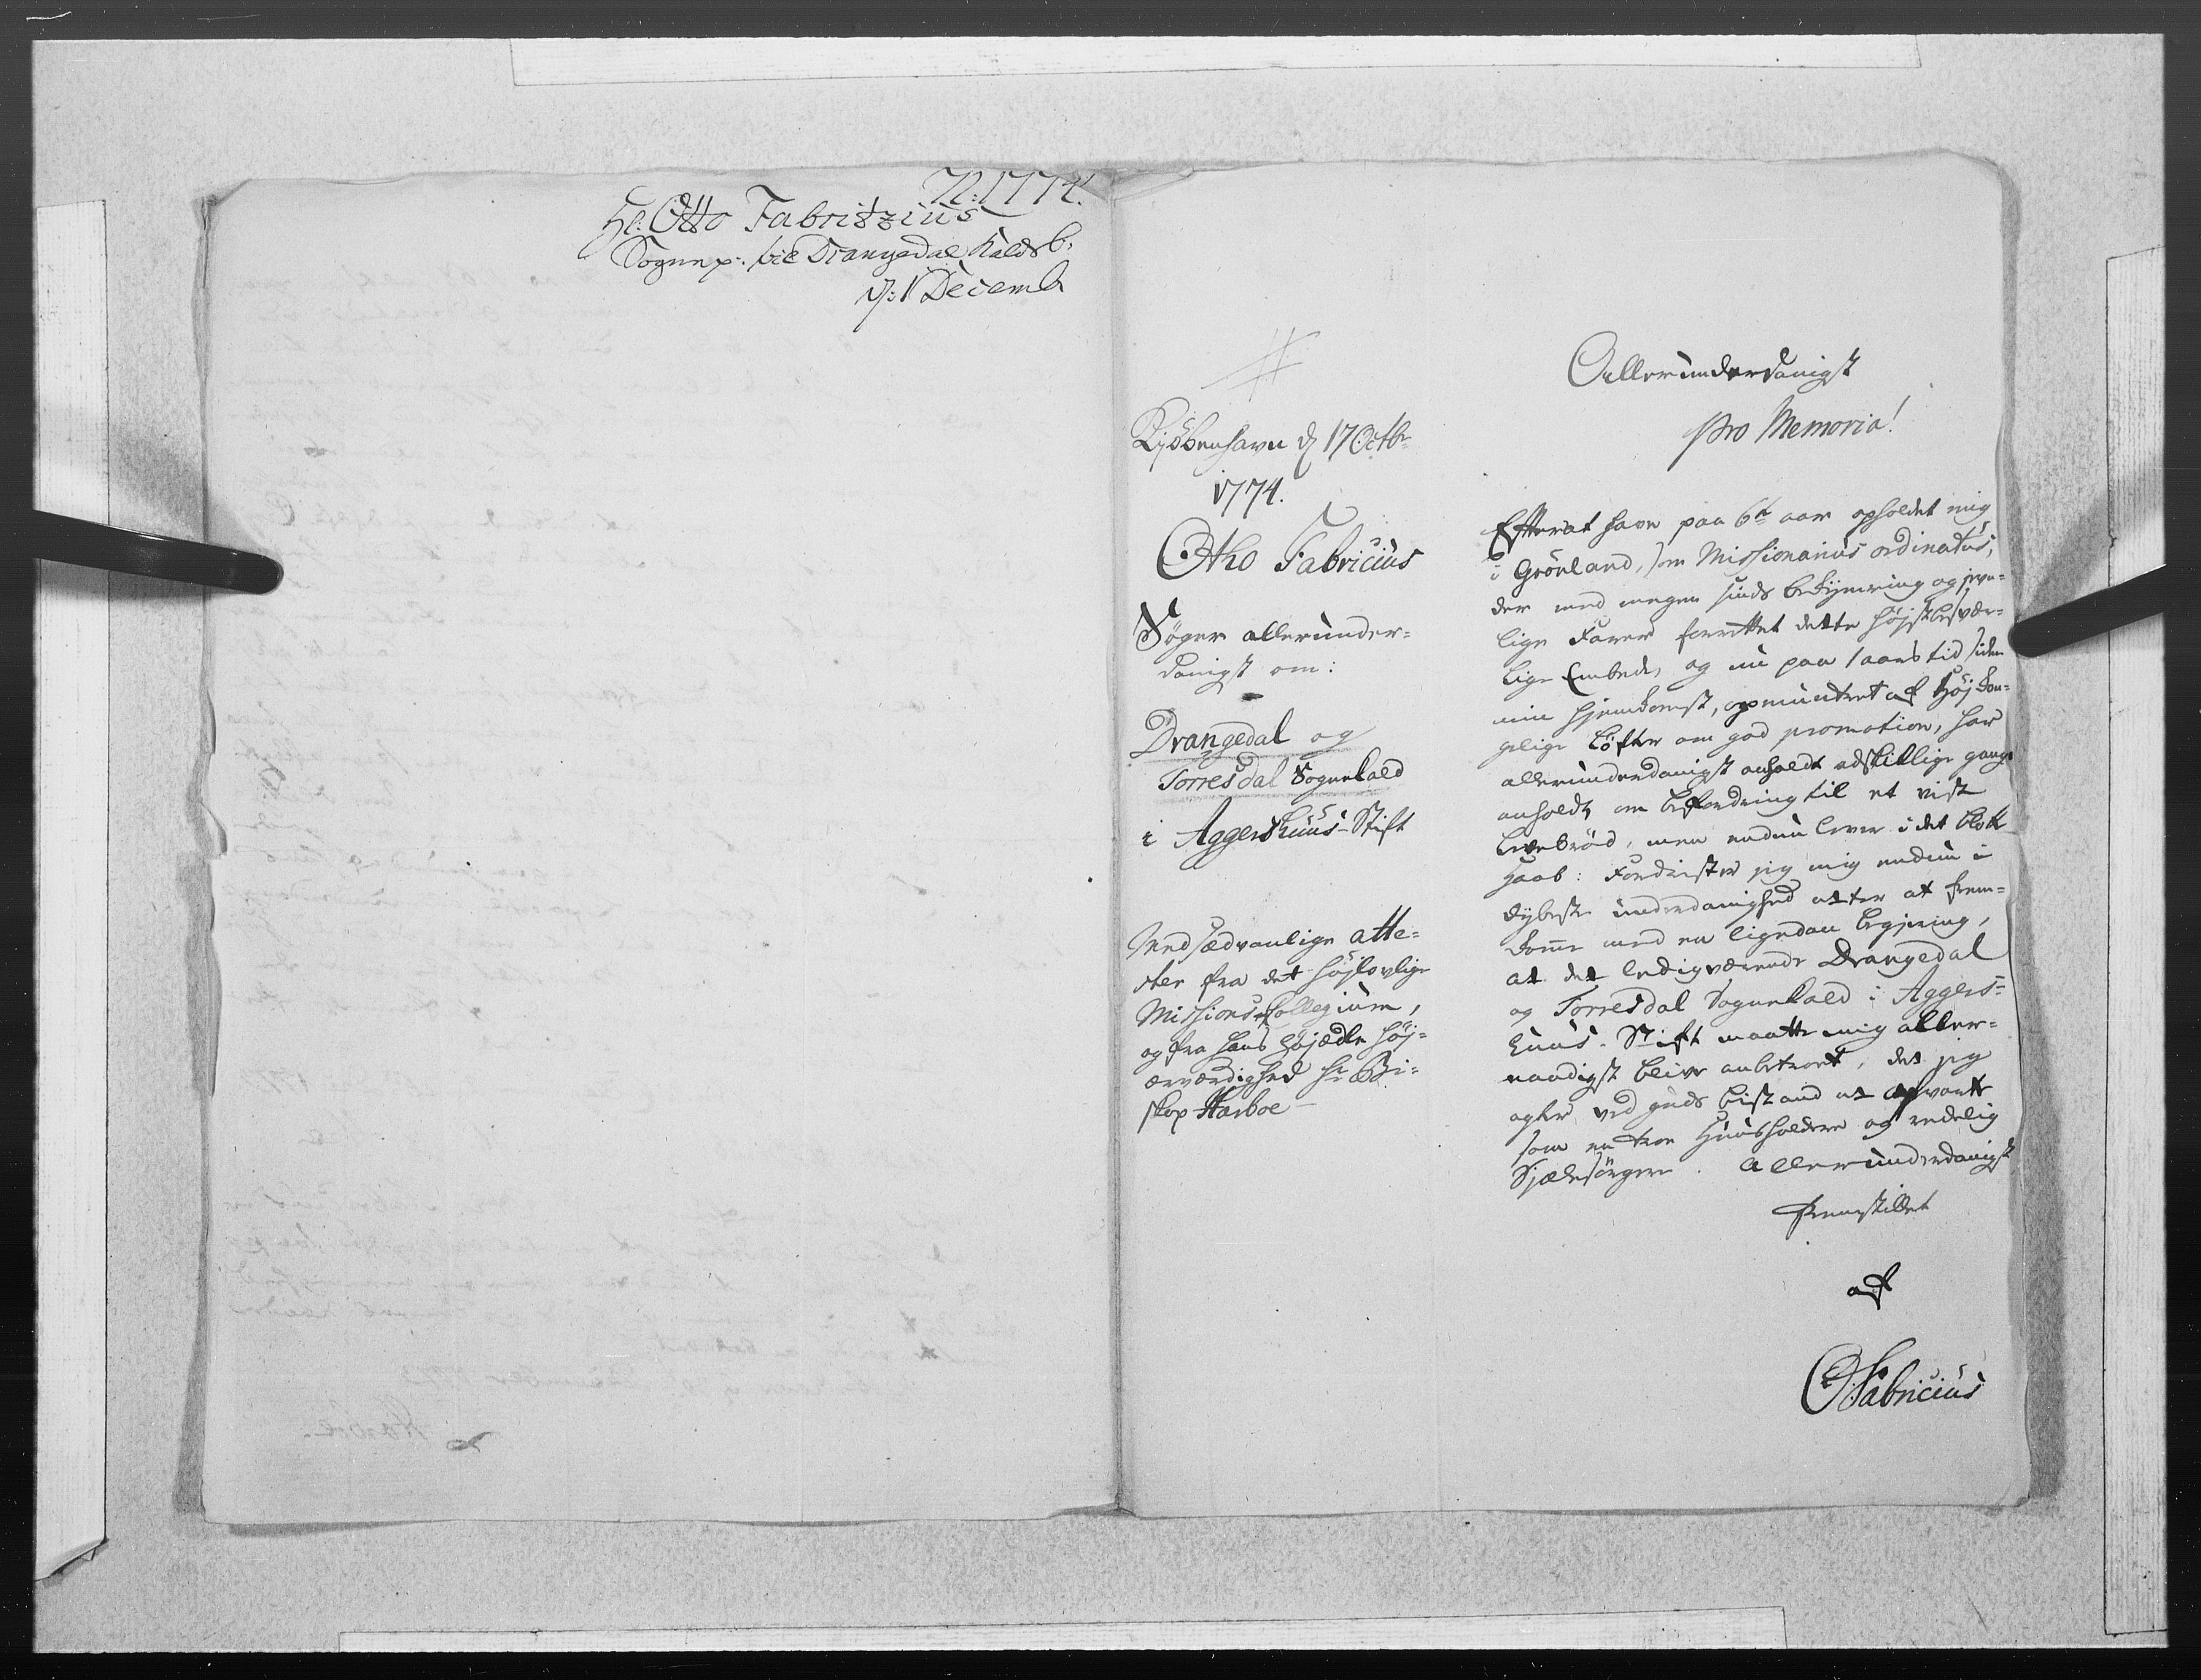 N: 1774.
Hr: Otto Fabritzius
Sognep: til Drangedal Kalds b:
d: 1 Decemb
Kjöbenhavn d 17 Octbr
1774.
Otho Fabricius
Söger allerunder=
danigst om:
Drangedal og
Torresdal Sognekald
i Aggershuus-Stift
Med sædvanlige atte=
ster fra det höjlovlige
Missions-Collegium,
og fra hans höjædle höj=
ærværdighed Hr Bi=
skop Harboe
Allerunderdanigst
Pro Memoria!
Efterat have paa 6te aar opholdet mig
i Grönland, som Missionarius ordinatus,
der med megen sinds bekymring og
lige Farer forrettet dette höjstbesvær=
lige Embede, og nu paa 1 aars tid siden
min hjemkomst, opmuntret af Höj kon=
gelige Löfter om god promotion, har
allerunderdanigst anholdt adskillige gange
anholdt om befordring til et vist
levebröd, men endnu lever i det blotte
Haab: Fordrister jeg mig endnu i
dybeste underdanighed atter at frem=
komme med en ligedan begjering,
at det ledigværende Drangedal
og Torresdal Sognekald i Aggers=
huus-Stift maatte mig aller=
naadigst blive anbetroet, det jeg
agter ved Guds bistand at opvarte
som en troe Huusholdere og redelig
Sjælesörgere. Allerunderdanigst
fremstillet
af
OFabricius